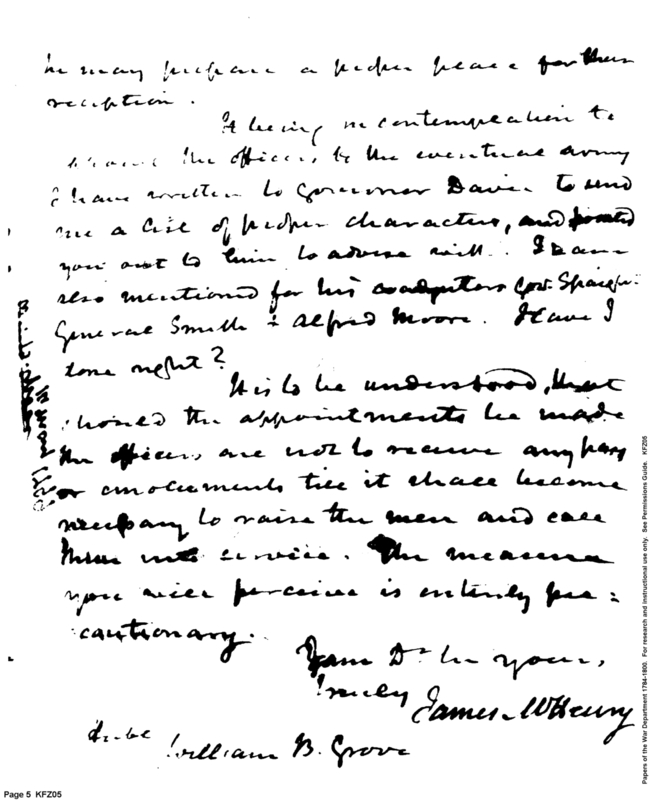 he may prepare a proper place for their
reception.
It being in contemplation to
the officers to the eventual army
I have written to Governor Davie to send
me a list of proper characters, and pointed
you out to him to advise with. I have
also mentioned for his coadjutors Gov. Spaigh-
General Smith & Alfred Moore. Have I
done right?
It is to be understood, that
should the appointments be made
the officers are not to receive any pay
or emoluments till it shall become
necessary to raise the men and call
them into service. The measure
you will perceive is entirely pre=
cautionary.
I am Dr Sir your,
truly
James McHenry
William B. Grove
Page 5 KFZ05
Papers of the War Department 1784-1800. For research and instructional use only. See Permissions Guide. KFZ05